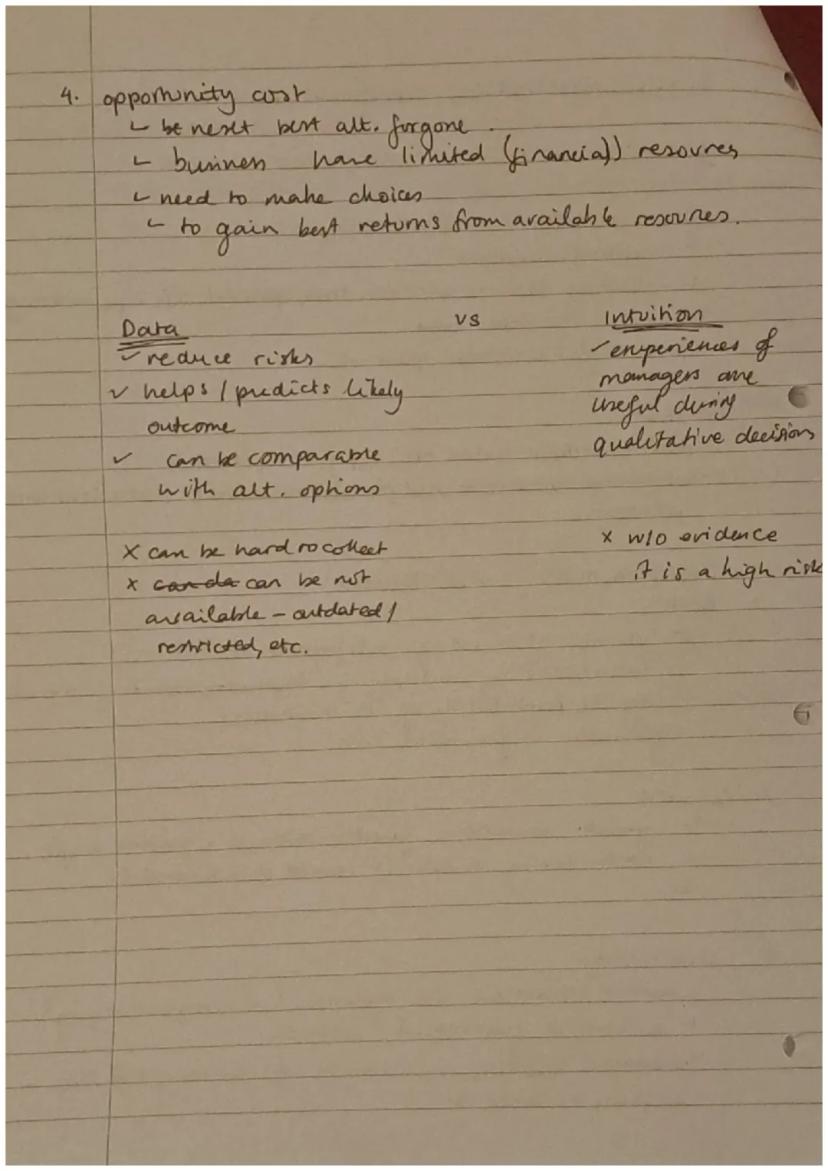 4. opportunity cost
↳ be next best alt. forgone.
↳ business have limited (financial) resources
↳ need to make choices
↳ to gain best returns from available resources.
Data vs Intuition
✓ reduce risks
✓ helps / predicts likely
outcome
✓ can be comparable
with alt. options
x can be hard to collect
x can be not
available - outdated /
restricted, etc.
✓ experiences of
managers are
useful during
qualitative decisions
x w/o evidence
it is a high risk